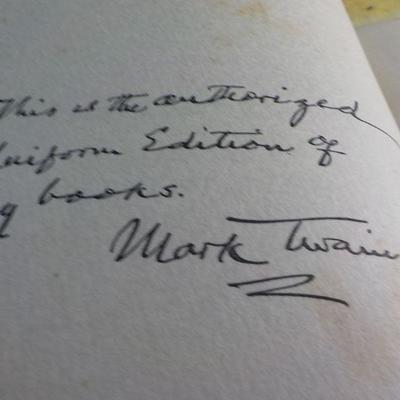 This is the authorized
Uniform Edition of
my books.
Mark Twain